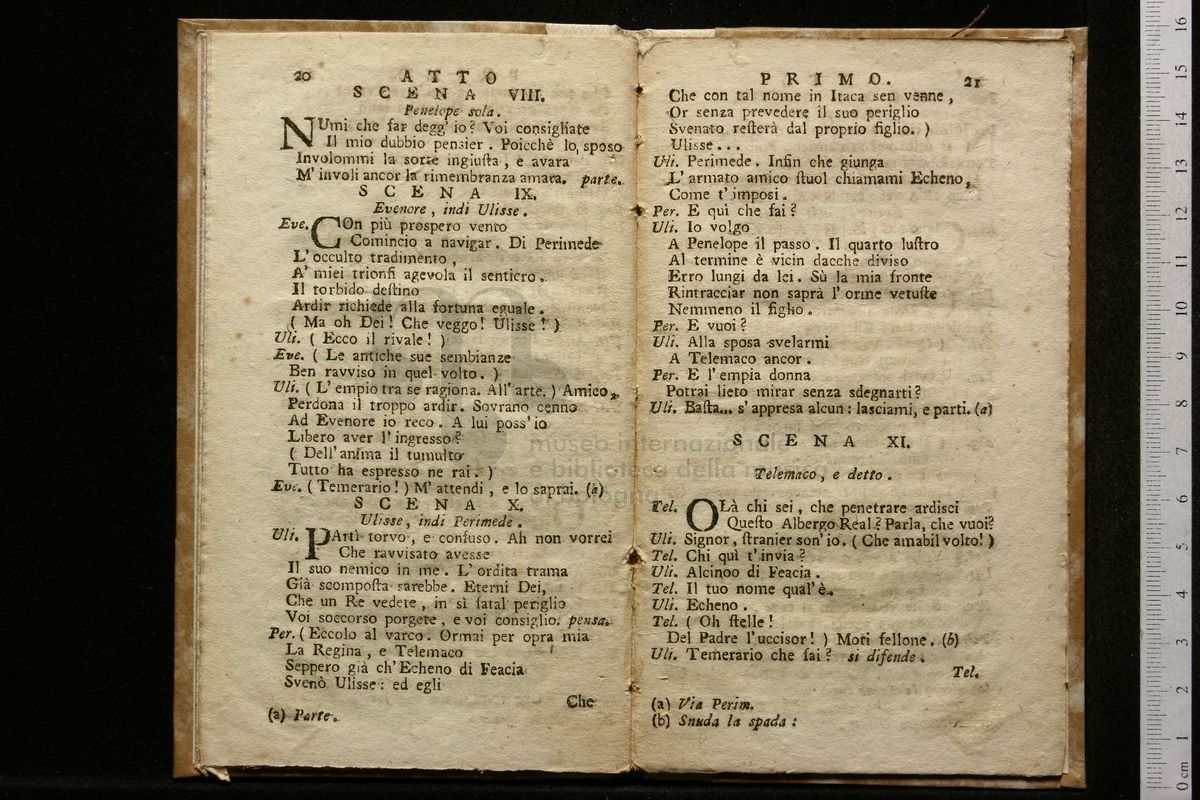 20 ATTO
SCENA VIII.
Penelope sola.
NUmi che far degg' io? Voi consigliate
Il mio dubbio pensier. Poicchè lo sposo
Involommi la sorte ingiuſta, e avara
M' involi ancor la rimembranza amara. parte.
SCENA IX.
Evenore, indi Ulisse.
Eve. COn più prospero vento
Comincio a navigar. Di Perimede
L' occulto tradimento,
A' miei trionfi agevola il sentiero.
Il torbido deſtino
Ardir richiede alla fortuna eguale.
( Ma oh Dei! Che veggo! Ulisse! )
Uli. ( Ecco il rivale! )
Eve. ( Le antiche sue sembianze
Ben ravviso in quel volto. )
Uli. ( L' empio tra se ragiona. All' arte. ) Amico,
Perdona il troppo ardir. Sovrano cenno
Ad Evenore io reco. A lui poss' io
Libero aver l' ingresso?
( Dell' anima il tumulto
Tutto ha espresso ne rai. )
Eve. ( Temerario! ) M' attendi, e lo saprai. (a)
SCENA X.
Ulisse, indi Perimede.
Uli. PArtì torvo, e confuso. Ah non vorrei
Che ravvisato avesse
Il suo nemico in me. L' ordita trama
Già scompoſta sarebbe. Eterni Dei,
Che un Re vedete, in sì fatal periglio
Voi soccorso porgete, e voi consiglio. pensa.
Per. ( Eccolo al varco. Ormai per opra mia
La Regina, e Telemaco
Seppero già ch' Echeno di Feacia
Svenò Ulisse: ed egli
Che
(a) Parte.
PRIMO. 21
Che con tal nome in Itaca sen venne,
Or senza prevedere il suo periglio
Svenato reſterà dal proprio figlio. )
Ulisse...
Uli. Perimede. Infin che giunga
L' armato amico ſtuol chiamami Echeno,
Come t' imposi.
Per. E quì che fai?
Uli. Io volgo
A Penelope il passo. Il quarto luſtro
Al termine è vicin dacchè diviso
Erro lungi da lei. Sù la mia fronte
Rintracciar non saprà l' orme vetuſte
Nemmeno il figlio.
Per. E vuoi?
Uli. Alla sposa svelarmi
A Telemaco ancor.
Per. E l' empia donna
Potrai lieto mirar senza sdegnarti?
Uli. Baſta... s' appresa alcun: lasciami, e parti. (a)
SCENA XI.
Telemaco, e detto.
Tel. OLà chi sei, che penetrare ardisci
Queſto Albergo Real? Parla, che vuoi?
Uli. Signor, ſtranier son' io. ( Che amabil volto! )
Tel. Chi quì t' invia?
Uli. Alcinoo di Feacia.
Tel. Il tuo nome qual' è.
Uli. Echeno.
Tel. ( Oh ſtelle!
Del Padre l' uccisor! ) Mori fellone. (b)
Uli. Temerario che fai? si difende.
Tel.
(a) Via Perim.
(b) Snuda la spada:
museo internazionale
e biblioteca della musica
di bologna
16
15
14
13
12
11
10
9
8
7
6
5
4
3
2
1
0 cm